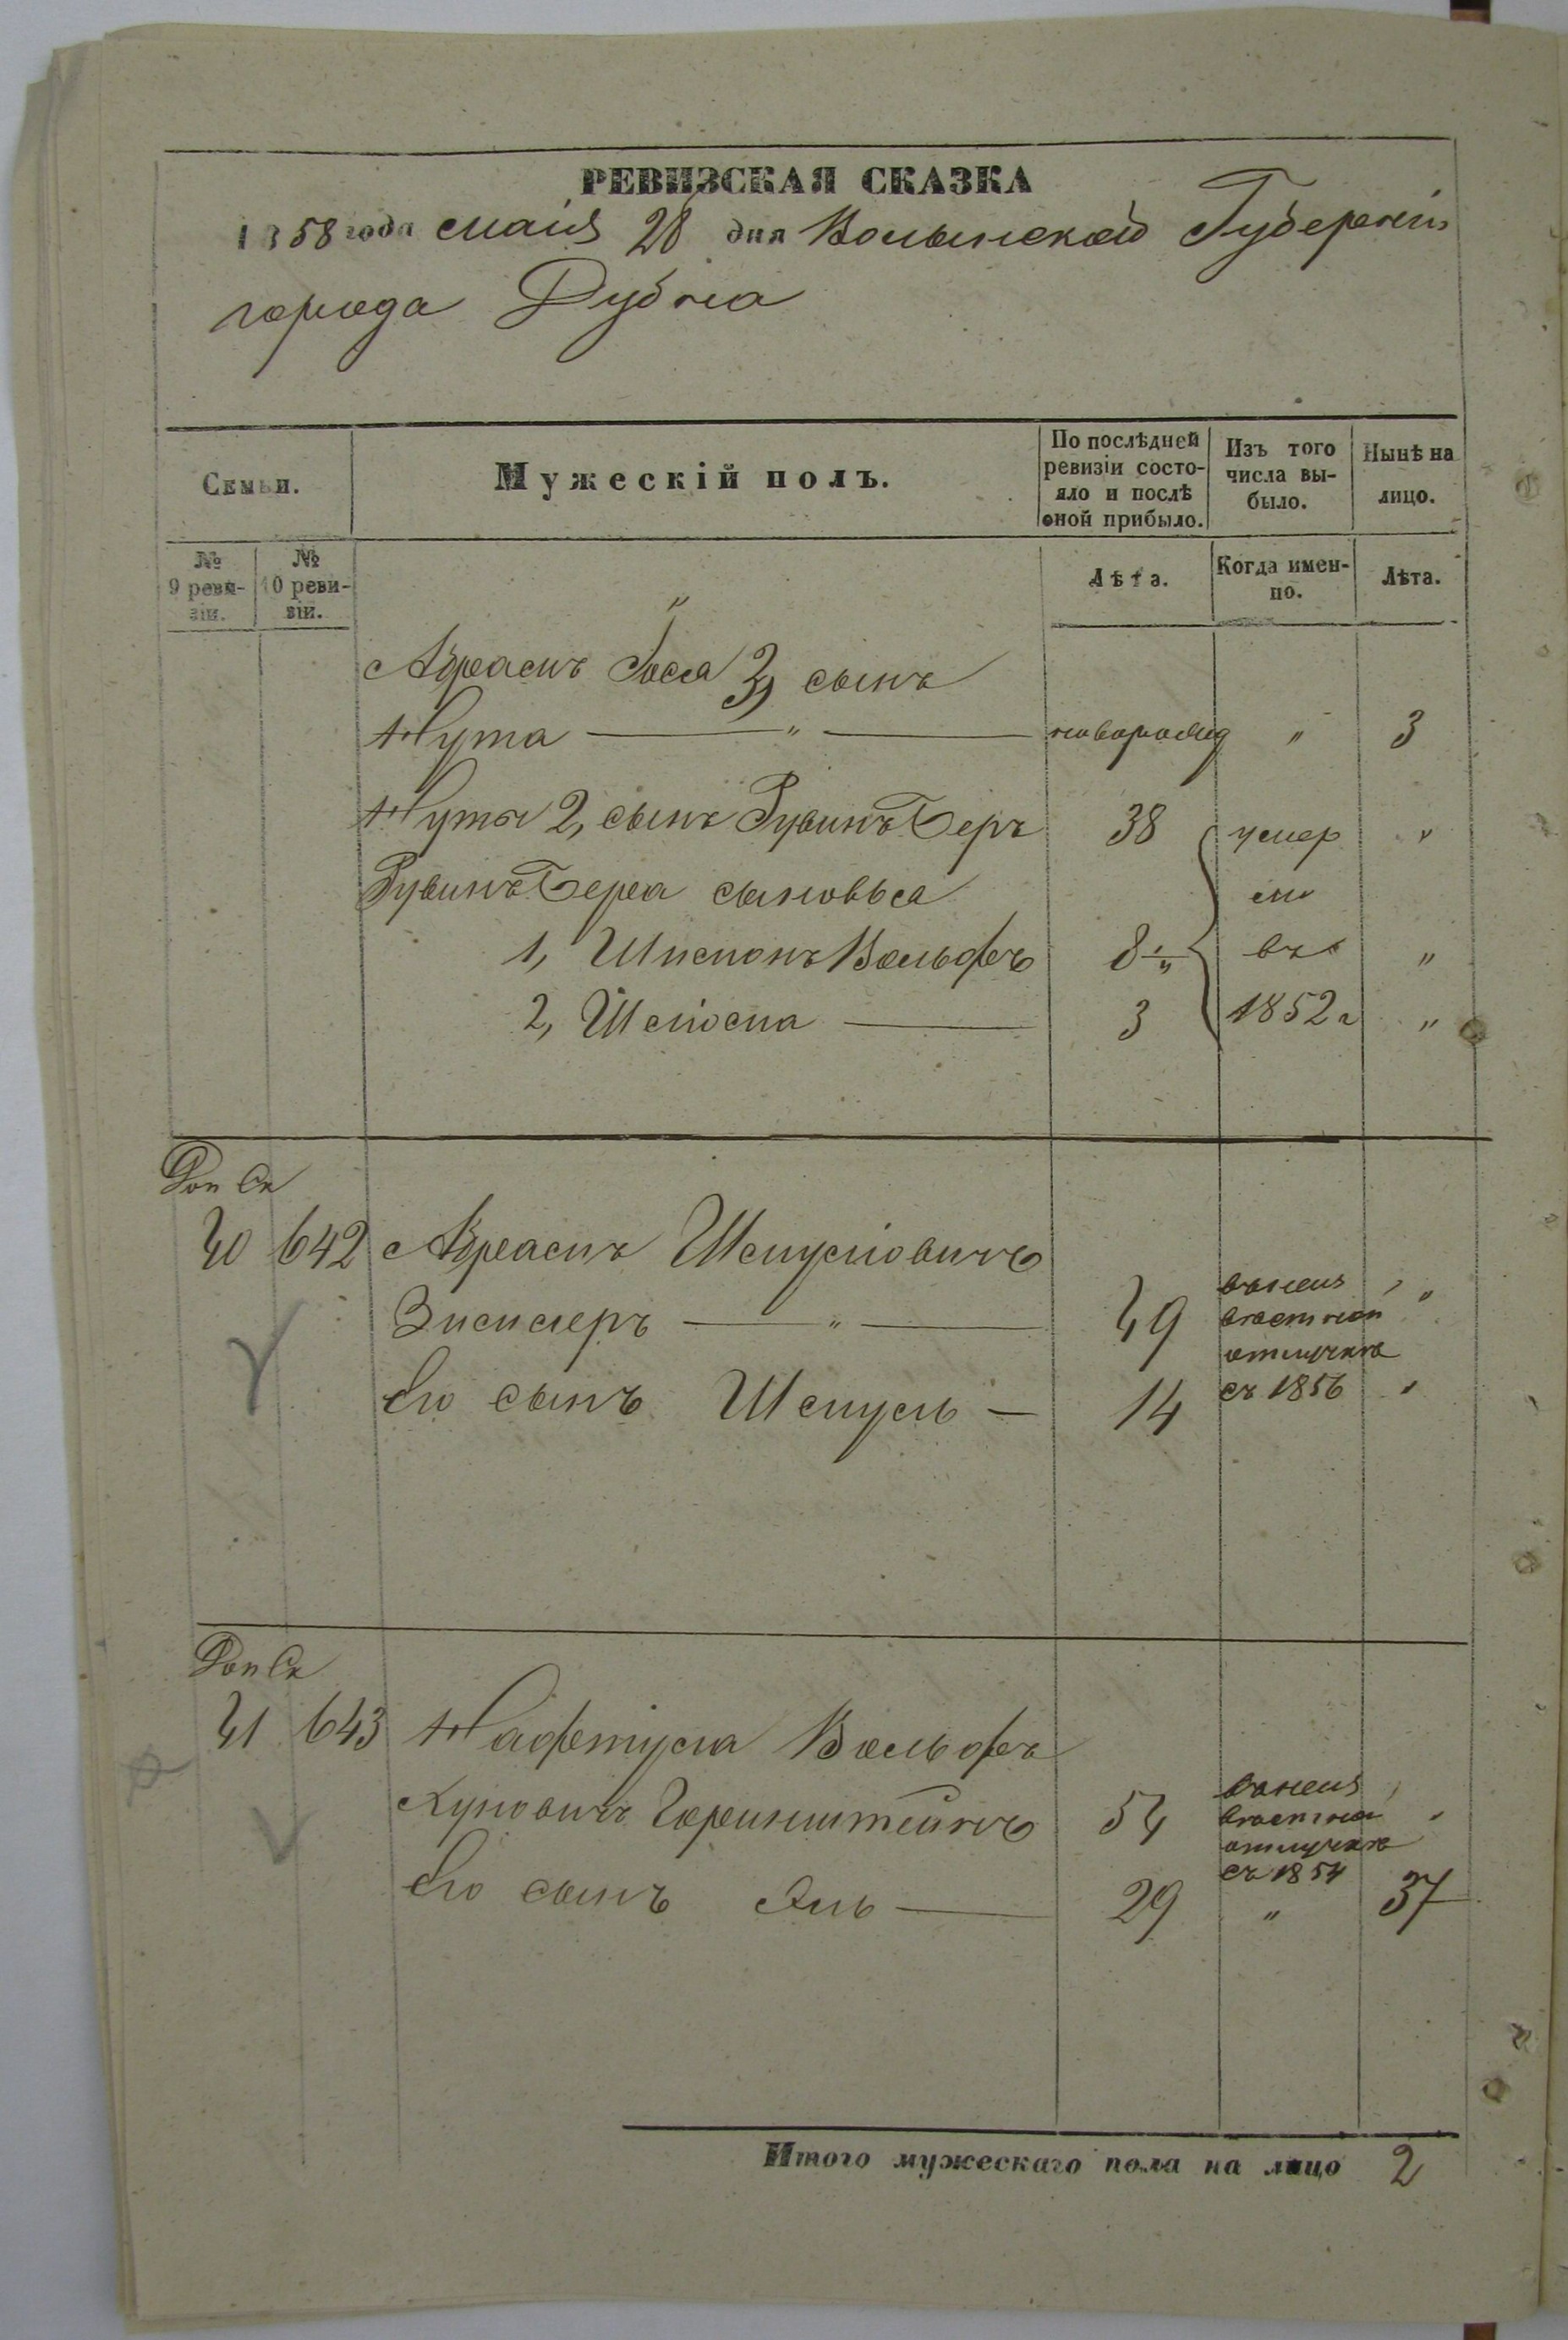 РЕВИЗСКАЯ СКАЗКА
1858 года маія 28 дня Волынской Губерніи
города Дубна
Семьи.
Мужескій полъ.
По послѣдней ревизіи состояло и послѣ оной прибыло.
Изъ того числа выбыло.
Нынѣ на лицо.
№ 9 ревизіи.
№ 10 ревизіи.
Лѣта.
Когда именно.
Лѣта.
"
Абрама Іоса 3, сынъ
Нута — " — новорожд " 3
Нуты 2, сынъ Рувинъ Беръ 38 умер "
Рувинъ Бера сыновья ли
1, Шимонъ Вольфъ 8 " въ "
2, Шліома — 3 1852 г "
Доп Ск
40 642 Абрамъ Шмуліовичъ
Зисмеръ — " — 49 въ неизвѣстной отлучкѣ "
Его сынъ Шмуль — 14 съ 1856 "
Доп Ск
41 643 Нафтула Вольфъ
Хуновичъ Горинштейнъ 54 въ неизвѣстной отлучкѣ съ 1854 "
Его сынъ — 29 " 37
Итого мужескаго пола на лицо 2